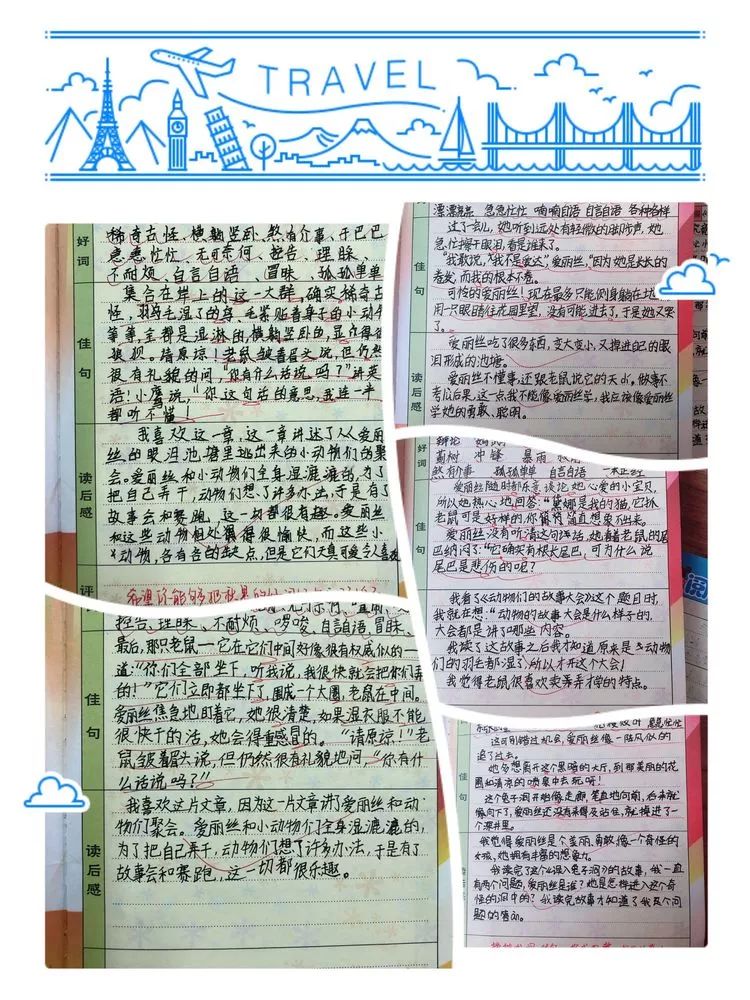 TRAVEL
好词
稀奇古怪、横躺竖卧、煞有介事、干巴巴
急急忙忙、无可奈何、控告、理睬、
不耐烦、自言自语、冒昧、孤孤单单
佳句
集合在岸上的这一大群,确实稀奇古
怪,羽毛毛湿了的鸟,毛紧贴着身子的小动物
等等,全都是湿淋的,横躺竖卧的,显得很
狼狈。请原谅!老鼠皱着眉头说,但仍然
很有礼貌的问,“你有什么话说吗?”讲英
语!小鹰说,“你这句话的意思,我连一半
都听不懂!
读后感
我喜欢这一章,这一章讲述了从爱丽
丝的眼泪池塘里逃出来的小动物们的聚
会。爱丽丝和小动物们全身湿漉漉的,为了
把自己弄干,动物们想了许多办法,于是有了
故事会和赛跑,这一切都很有趣。爱丽丝
和这些动物相处得很愉快,而这些小
动物,各有各的缺点,但是它们天真可爱令人喜欢
评
希望你能够把
控告、理睬、不耐烦、啰唆、自言自语、冒昧、
佳句
最后,那只老鼠——它在它们中间好像很有权威似的——
道:“你们全部坐下,听我说,我很快就会把你们弄
的!”它们立即都坐下了,围成一个大圈,老鼠在中间。
爱丽丝焦急地盯着它,她很清楚,如果湿衣服不能
很快干的话,她会得重感冒的。“请原谅!”老
鼠皱着眉头说,但仍然很有礼貌地问,“你有什
么话说吗?”
读后感
我喜欢这片文章,因为这一片文章讲了爱丽丝和动
物们聚会。爱丽丝和小动物们全身湿漉漉的,
为了把自己弄干,动物们想了许多办法,于是有了
故事会和赛跑,这一切都很乐趣。
漂漂亮亮 急急忙忙 喃喃自语 自言自语 各种各样
佳句
过了一会儿,她听到远处有轻微的脚步声,她
急忙擦干眼泪,看是谁来了。
“我敢说,“我不是爱达”,爱丽丝,“因为她是长长的
卷发,而我的根本不卷。
可怜的爱丽丝!现在最多只能侧身躺在地
用一只眼睛往花园里望,没有可能进去了,于是她又哭
了。
读后感
爱丽丝吃了很多东西,变大变小,又掉进自己的眼
泪形成的池塘。
爱丽丝不懂事,还跟老鼠说它的天di。做事不
考虑后果,这一点我不能像爱丽丝学,我应该像爱丽丝
学她的勇敢、聪明。
好词
辩论
冲锋 暴雨
煞有介事 孤孤单单 自言自语 一本正经
佳句
爱丽丝随时都乐意谈论她心爱的小宝贝,
所以她热心地回答:“黛娜是我的猫,它抓
老鼠可是好样的,你们简直想象不出来。
爱丽丝没有听清这句话,她看着老鼠的尾
巴纳闷:“它确实有根长尾巴,可为什么说
尾巴是悲伤的呢?
我看了《动物们的故事大会》这个题目时,
我就在想:“动物的故事大会是什么样子的,
大会都是讲了哪些内容。
我读了这故事之后我才知道原来是动物
们的羽毛都湿了,所以才开这个大会!
我觉得老鼠很喜欢卖弄才华的特点。
急急忙忙
佳句
这可别错过机会,爱丽丝像一阵风似的
追了过去。
她多想离开这个黑暗的大厅,到那美丽的花
圃和清凉的喷泉中去玩呀!
这个兔子洞开始像走廊,笔直地向前,后来就
向下了,爱丽丝还没有来得及站住,就掉进了一
个深井里。
读后感
我觉得爱丽丝是个美丽、勇敢、像一个奇怪的
女孩,她拥有丰富的想象力。
我读完了这个《掉入兔子洞》的故事,我一直
有两个问题,爱丽丝是谁?她是怎样进入这个奇
怪的洞中的?我读完故事才知道了我及个问
题的答an。